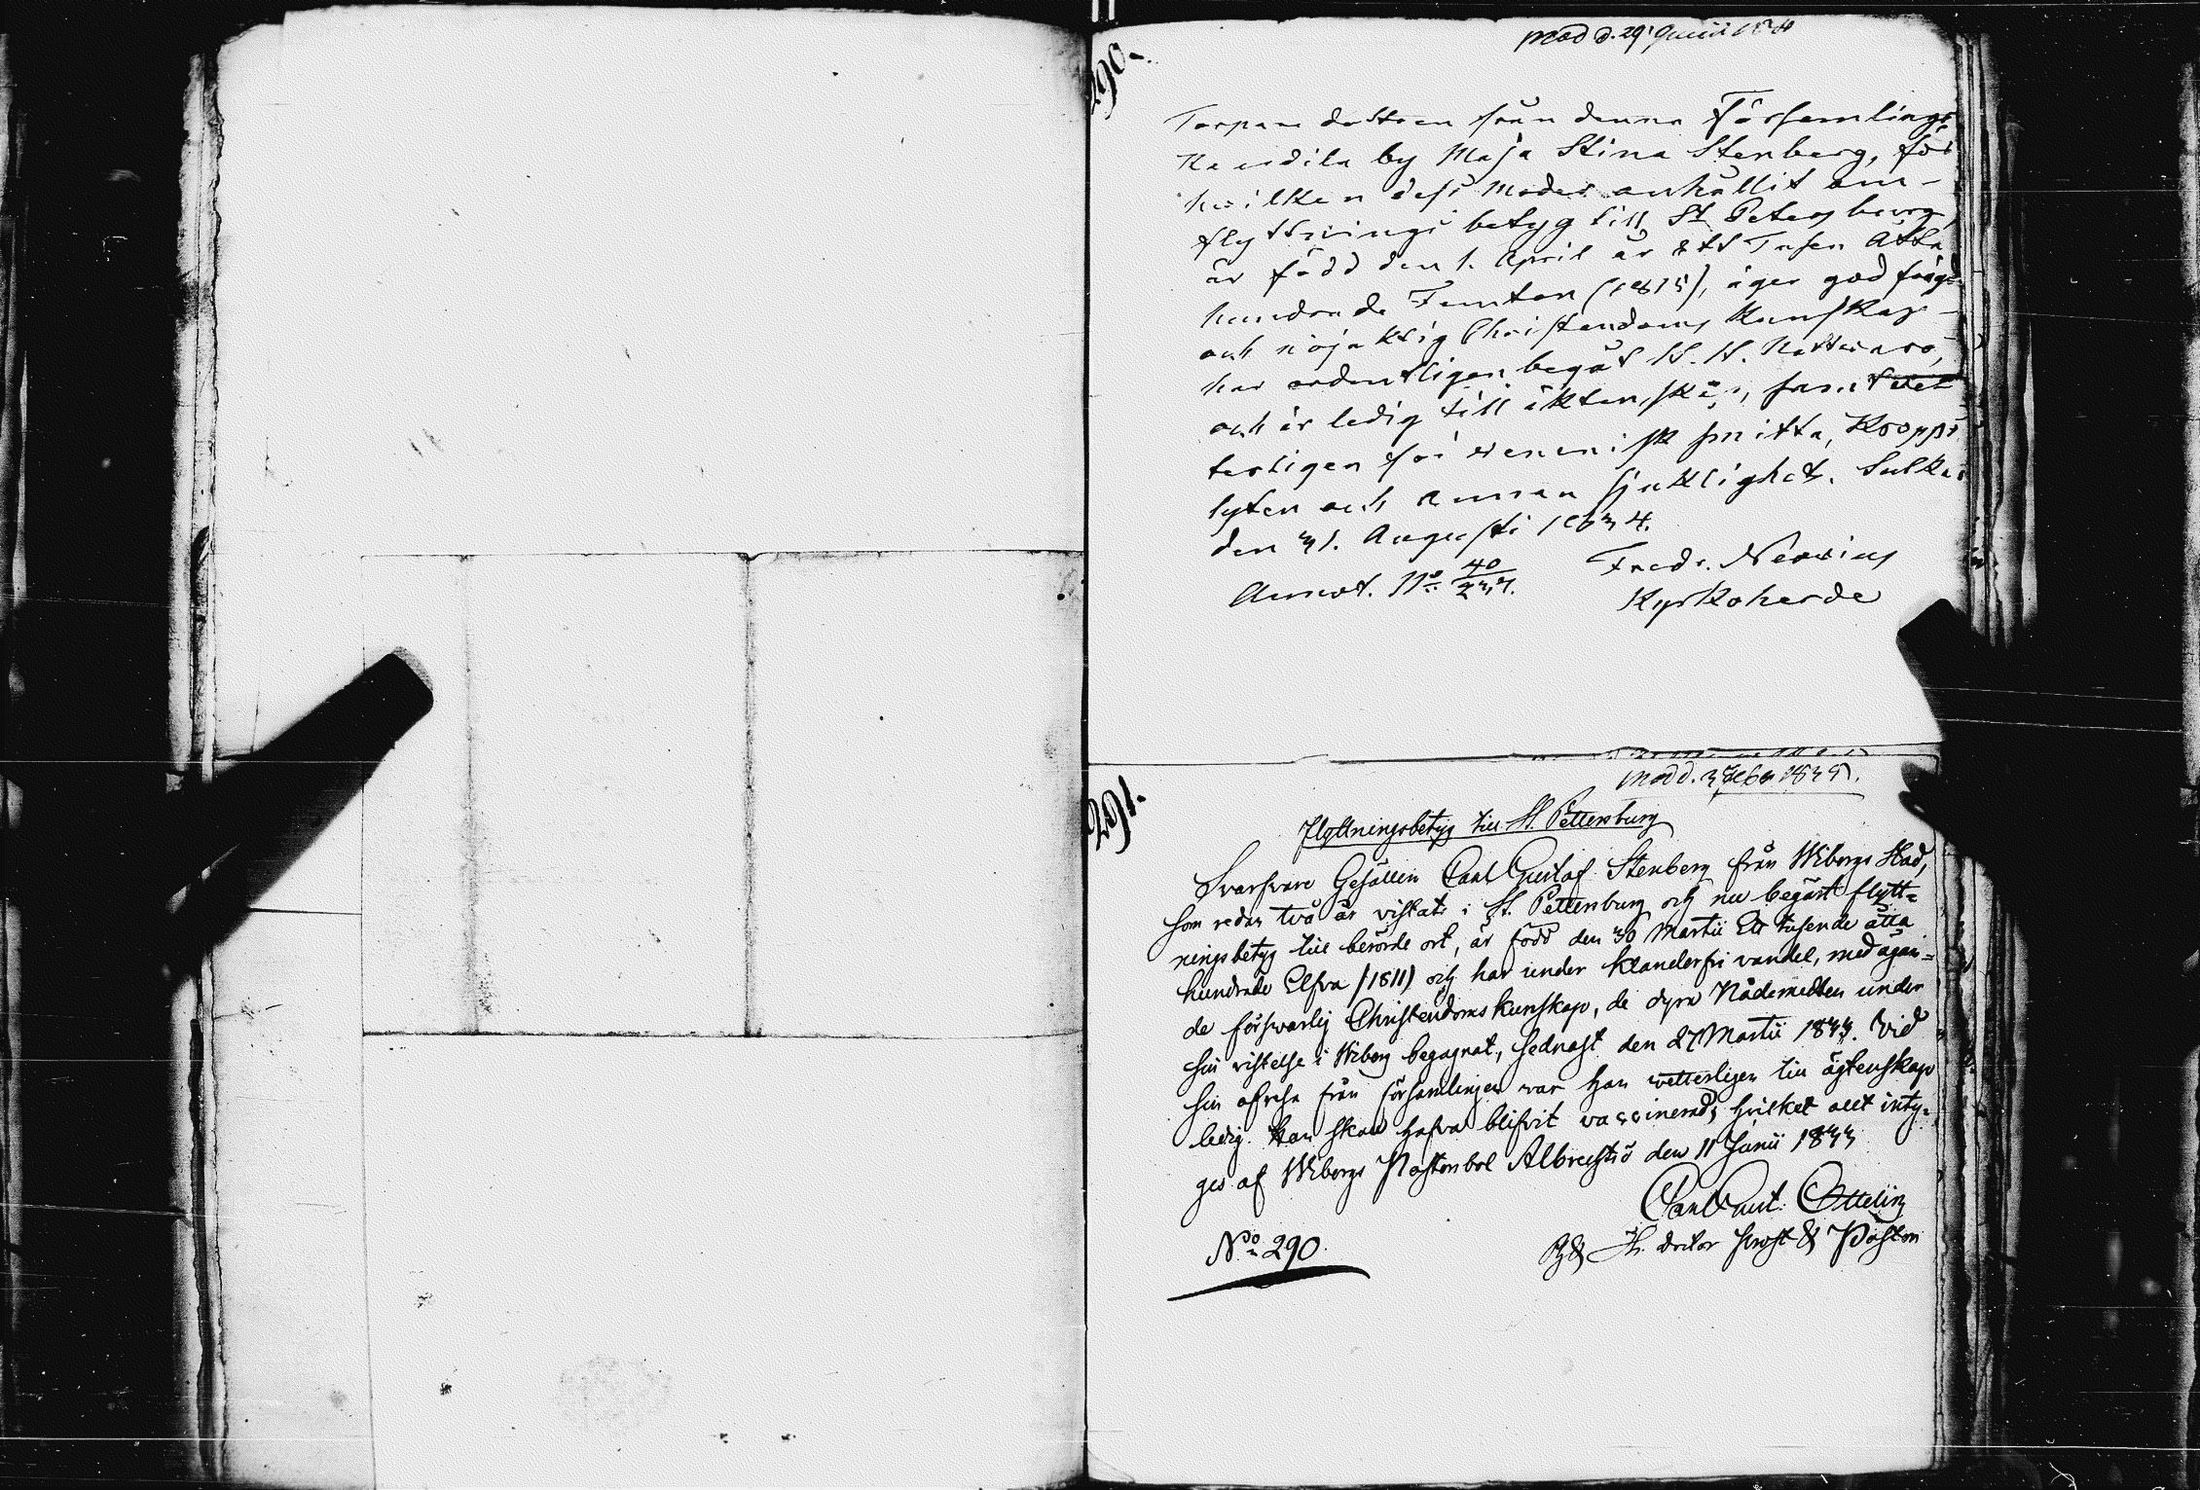 290.
Torpare dottren från denna Församlings
Kaudila by Maja Stina Stenberg, för
hvilken dess Moder anhållit om
flyttnings betyg till St Petersburg,
är född den 1. April år ett Tusen Åtta
hundrade Femton (1815), äger god frägd
och nöjaktig Christendoms Kunskap
har ordentligen begåt H. H. Nattvard,
och är ledig till äktenskap, samt
fri venerisk smitta, Kropps
lyten och annan sjuklighet.
den 31. Augusti 1834.
Fredr. Neovius
Annot. No 40
Kyrkoherde
291.
Flyttningsbetyg till St. Pettersburg
Svarfvare Gesällen Carl Gustaf Stenberg från Wiborgs Stad,
som redan två år vistats i St. Pettersburg och nu begärt flytt=
ningsbetyg till berörde ort, är född den 30 Martii Ett tusende åtta
hundrade Elfva (1811) och har under klanderfri vandel, med ägan=
de försvarlig Christendoms kunskap, de dyra Nådemedlen under
sin vistelse i Wiborg begagnat, sednast den 27 Martii 1833. Vid
sin afresa från församlingen var han vetterligen till ägtenskap
ledig. Han skall hafva blifvit vaccinerad; hvilket allt inty=
gas af Wiborgs Pastorsbol den 11 Junii 1833
Carl Gust. Ottelin
No 290.
Th. doctor Prost & Pastor